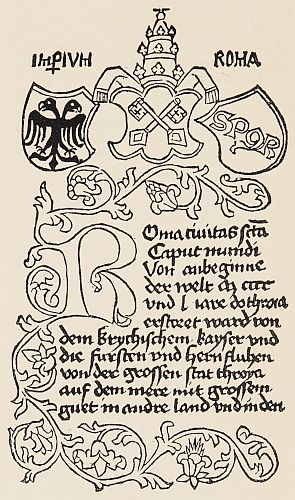 IMPIVM ROMA
SPQR
ROma tiuitas sctā
Caput mundi
Von anbeginne
der welt
vnd l iare do throya
erstoret ward von
dem krychischem kayser vnd
die fursten vnd hern fluhen
von der grossen stat throya
auf dem mere mit grossem
guet in andre land vnd inden